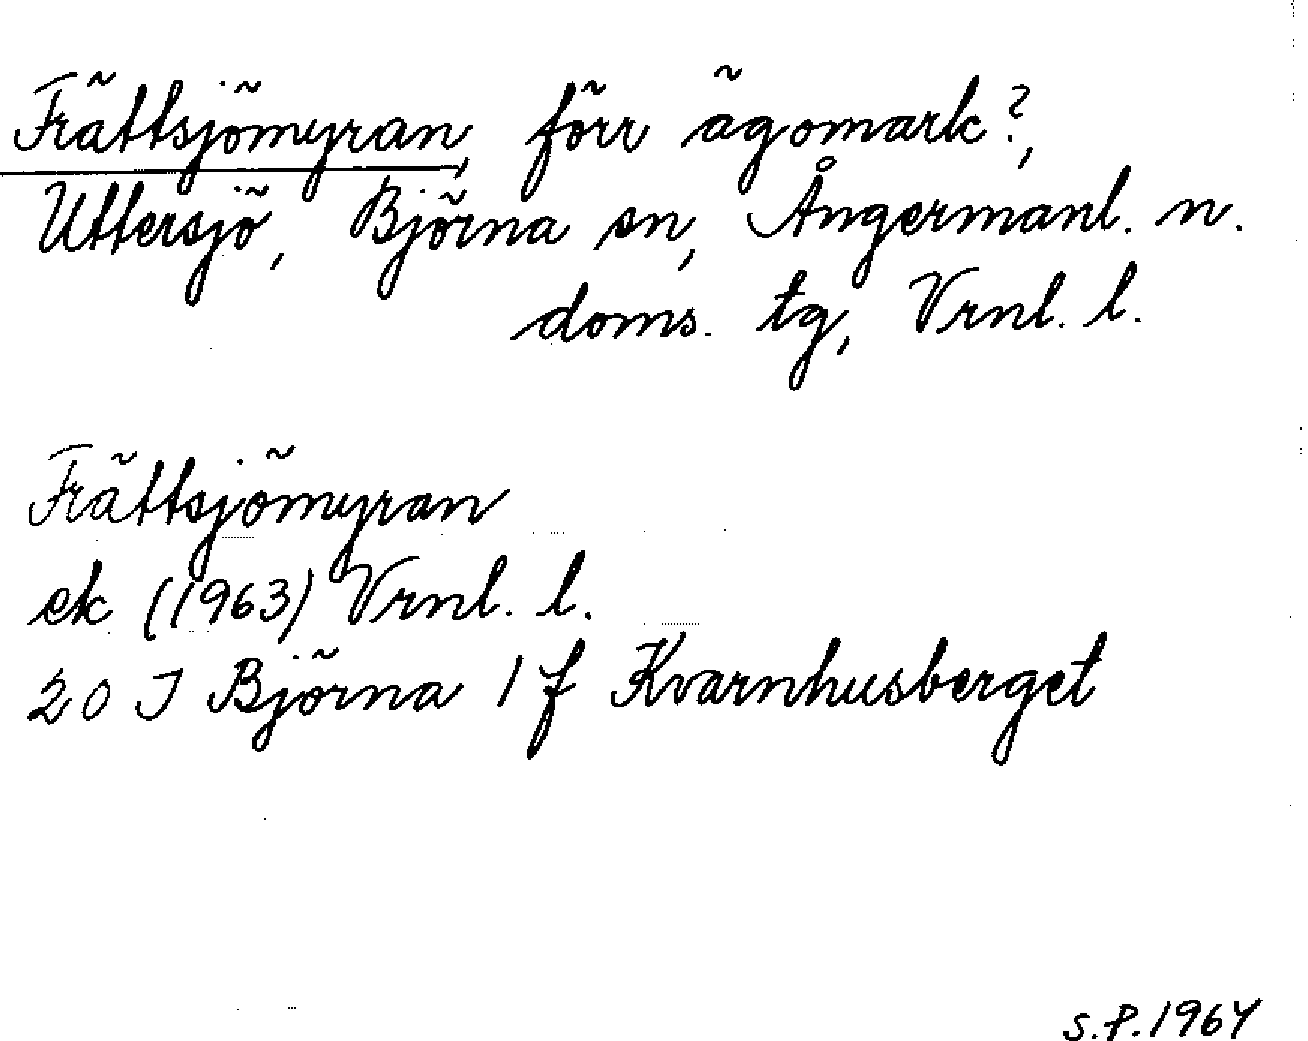 Frättsjömyran, förr ägomark?,
Uttersjö, Björna sn, Ångermanl. n.
doms. tg, Vrnl. l.
Frättsjömyran
ek (1963) Vrnl. l.
20 J Björna 1 f Kvarnhusberget
S.P. 1964